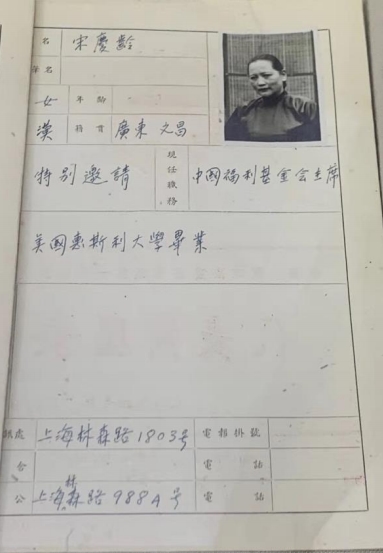 名 宋慶齡
名
女 年齡
漢 籍貫 廣東 文昌
特别邀請 現任職務 中國福利基金会主席
美國惠斯利大學畢業
訊處 上海林森路1803号 電報掛號
舍 電話
公 上海林森路988A号 電話